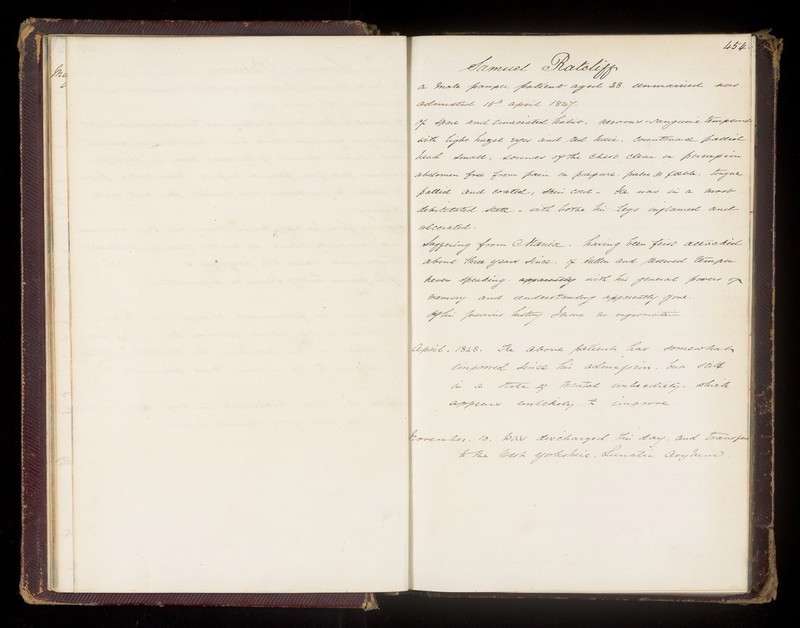 454.
Samuel Ratcliff
a male pauper patient aged 38. unmarried was
admitted 14th April 1847
of spare and emaciated habit, nervous-sanguine temperament
with light hazel eyes and red hair. Countenance pallid
head small, sounds of the chest clear on percussion
abdomen free from pain on pressure pulse feeble. tongue
pallid and coated, skin cool - He was in a most
debilitated state - with both his legs inflamed and
ulcerated.
Suffering from Mania. having been first attacked
about three years since. of sullen and reserved temper
never speaking. apparently with his general powers of
memory and understanding apparently gone.
Of his previous history I have no information
April - 1848. The above patient has somewhat
improved since his admission. but still
in a state of mental imbecility. which
appears unlikely to improve
November. 10. Was discharged this day. and transfer
to the West Yorkshire. Lunatic Asylum.